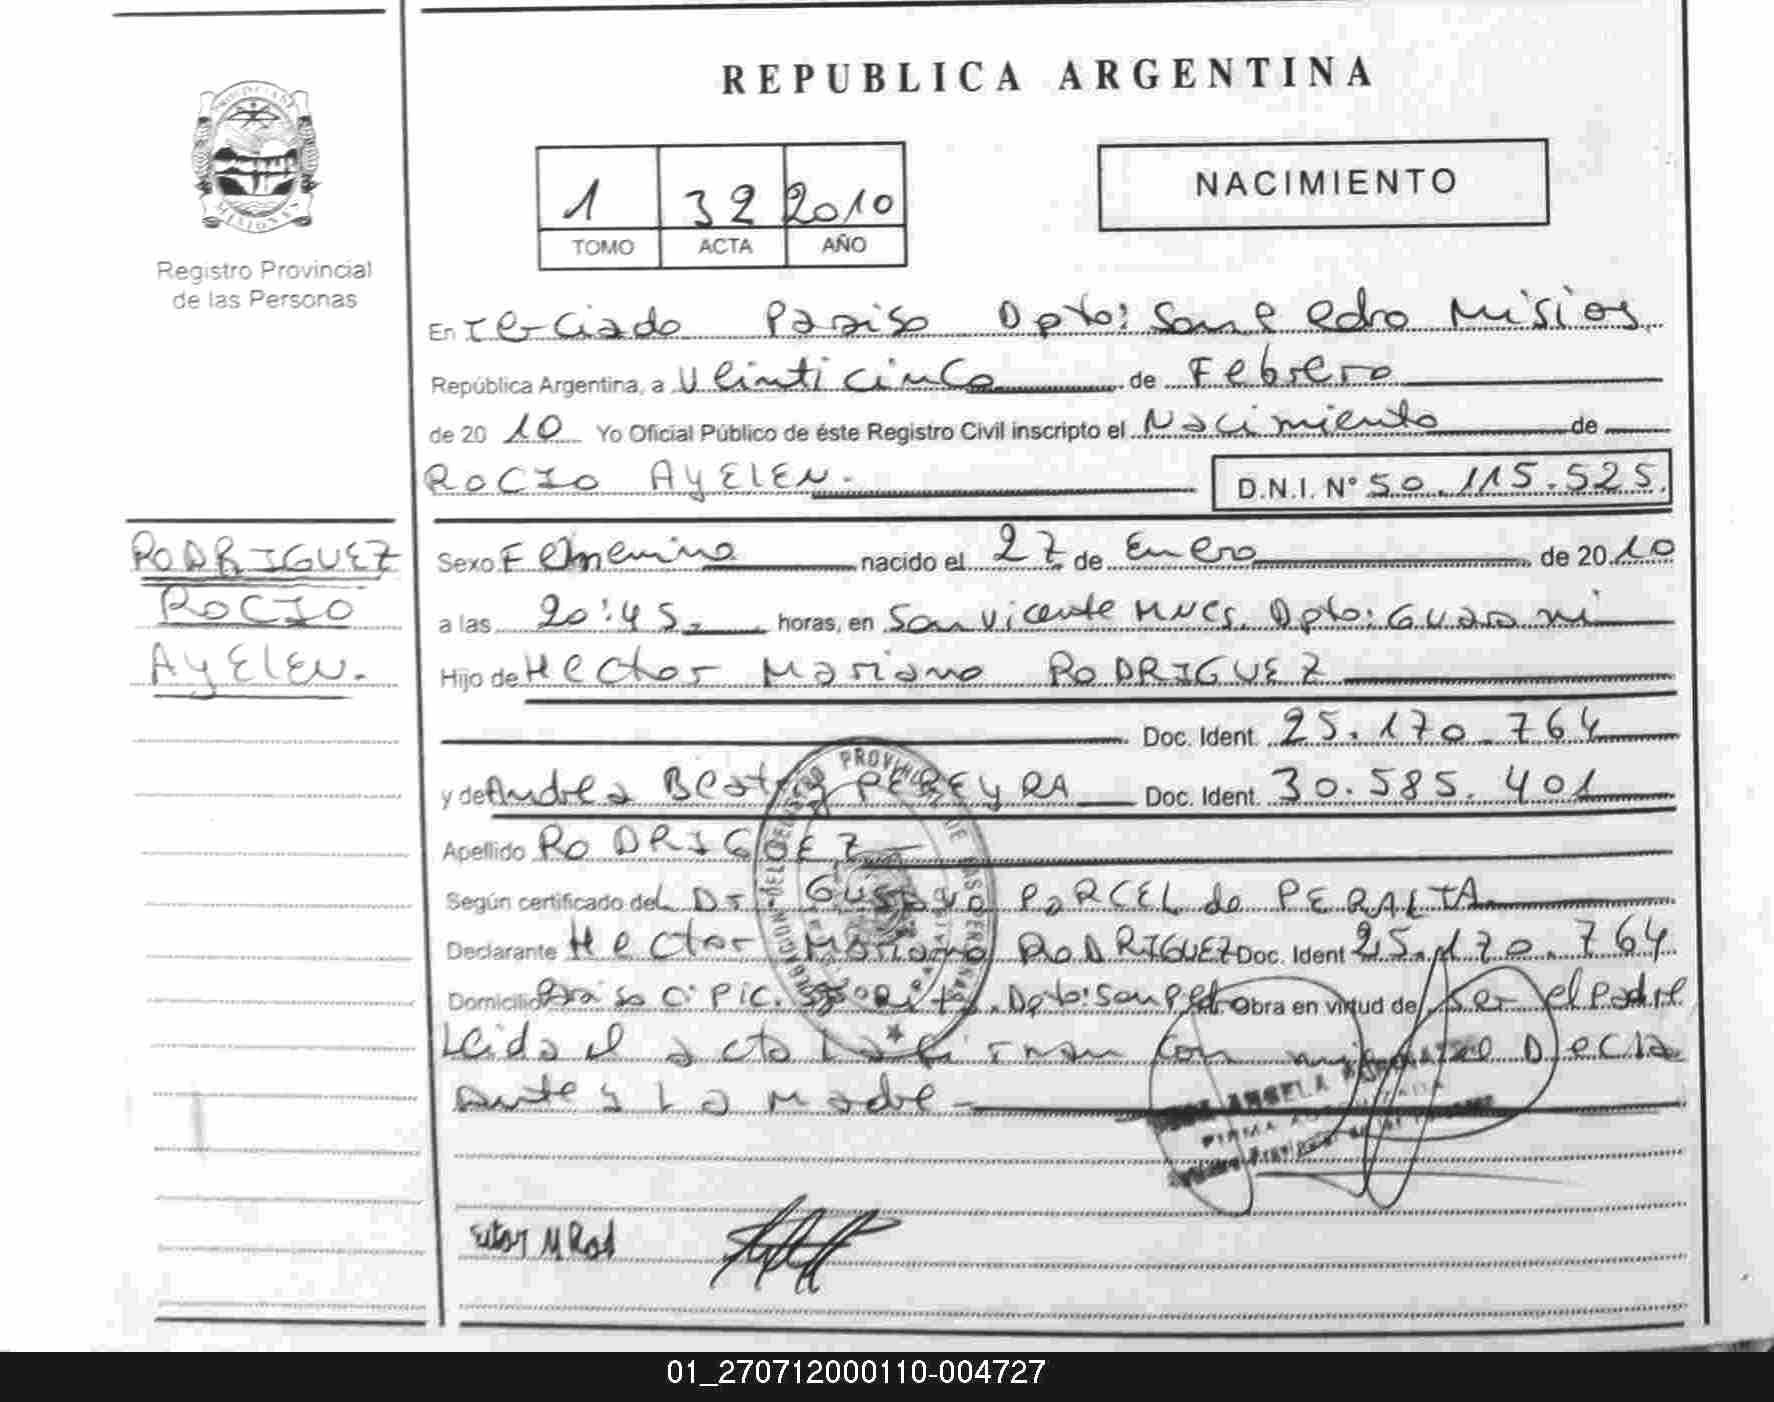 REPUBLICA ARGENTINA
1 32 2010
TOMO ACTA AÑO
NACIMIENTO
Registro Provincial
de las Personas
En Terciado Paraiso Dpto: San Pedro Misiones
República Argentina, a Veinticinco de Febrero
de 2010 Yo Oficial Público de éste Registro Civil inscripto el Nacimiento de
ROCIO AYELEN.
D.N.I. N° 50.115.525.
RODRIGUEZ
ROCIO
AYELEN.
Sexo Femenino nacido el 27 de Enero de 2010
a las 20:45 horas, en San Vicente MNES. Dpto: Guarani
Hijo de Hector Mariano RODRIGUEZ
Doc. Ident. 25.170.764
y de Andrea Beatriz PEREYRA Doc. Ident. 30.585.401
Apellido RODRIGUEZ
Según certificado del Dr Gustavo PORCEL de PERALTA
Declarante Hector Mariano RODRIGUEZ Doc. Ident 25.170.764
Domicilio Paraiso C. Pic. Dpto: San Pedro Obra en virtud de Ser el Padre
Leida el acta la firman con migo el Decla
rante y La Madre
ANGELA
FIRMA
01_270712000110-004727